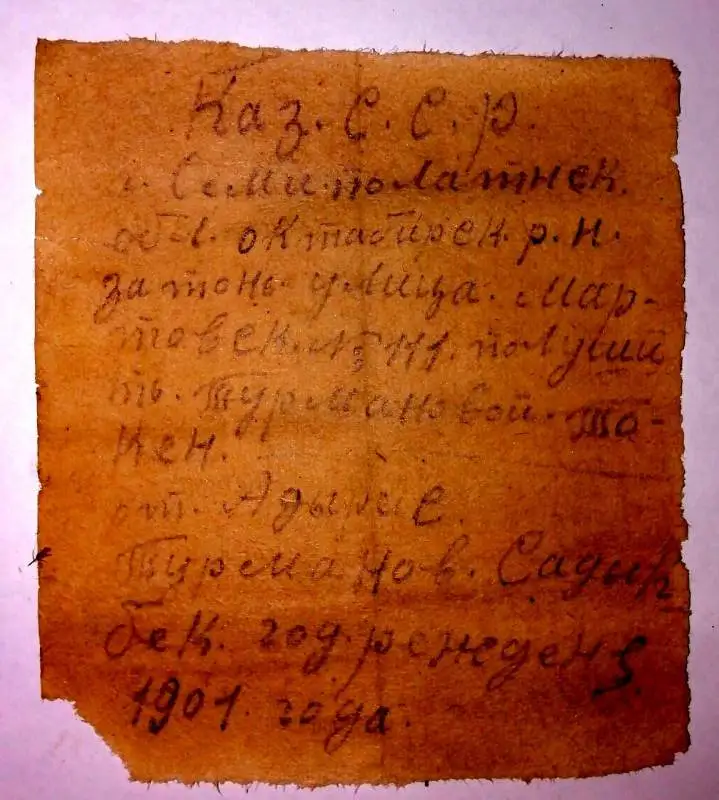 Каз. С. С. р.
г. Семиполатнск.
обл. октабирск. р. н.
затонь улица. Мар-
товск. № 41. полуший
ть. Турмановой. То-
кен.
от.
Турманов. Садик
бек. год. режден
1901. года.